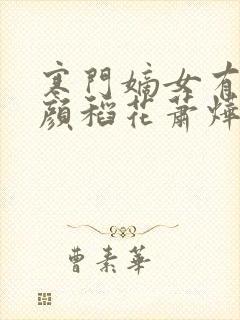 寒門嫡女有
顏稻花蕭燁
曹素華